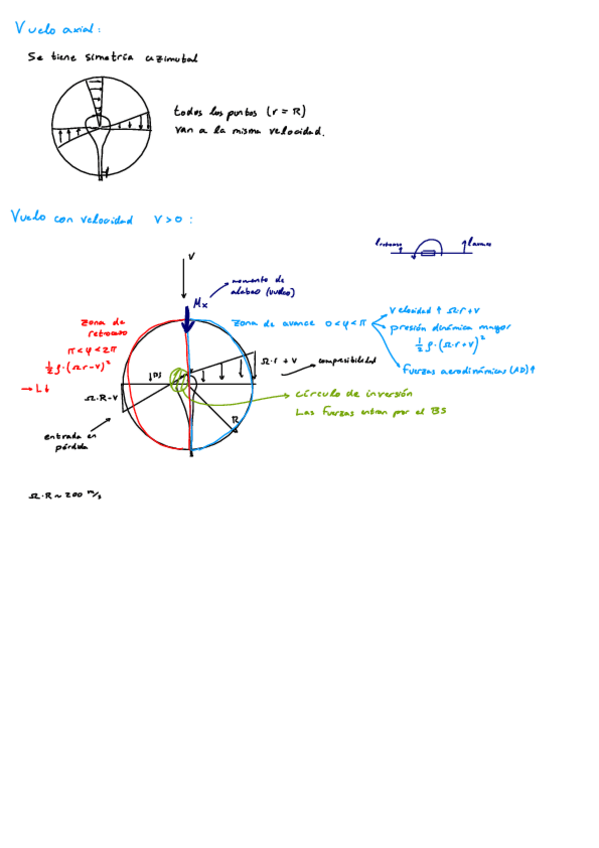 Vuelo axial:
Se tiene simetría azimutal
todos los puntos (r = R)
van a la misma velocidad.
Vuelo con velocidad V > 0 :
V
Mx
momento de
alabeo (vuelco)
zona de
retroceso
π < ψ < 2π
½ρ·(Ω·r-V)²
→ L↓
zona de avance 0 < ψ < π
velocidad ↑ Ω·r+V
presión dinámica mayor
½ρ·(Ω·r+V)²
Fuerzas aerodinámicas (AD)↑
Ω·r + V
compresibilidad
BS
Ω·R-V
R
círculo de inversión
Las fuerzas entan por el BS
entrada en
pérdida
Ω·R ~ 200 m/s